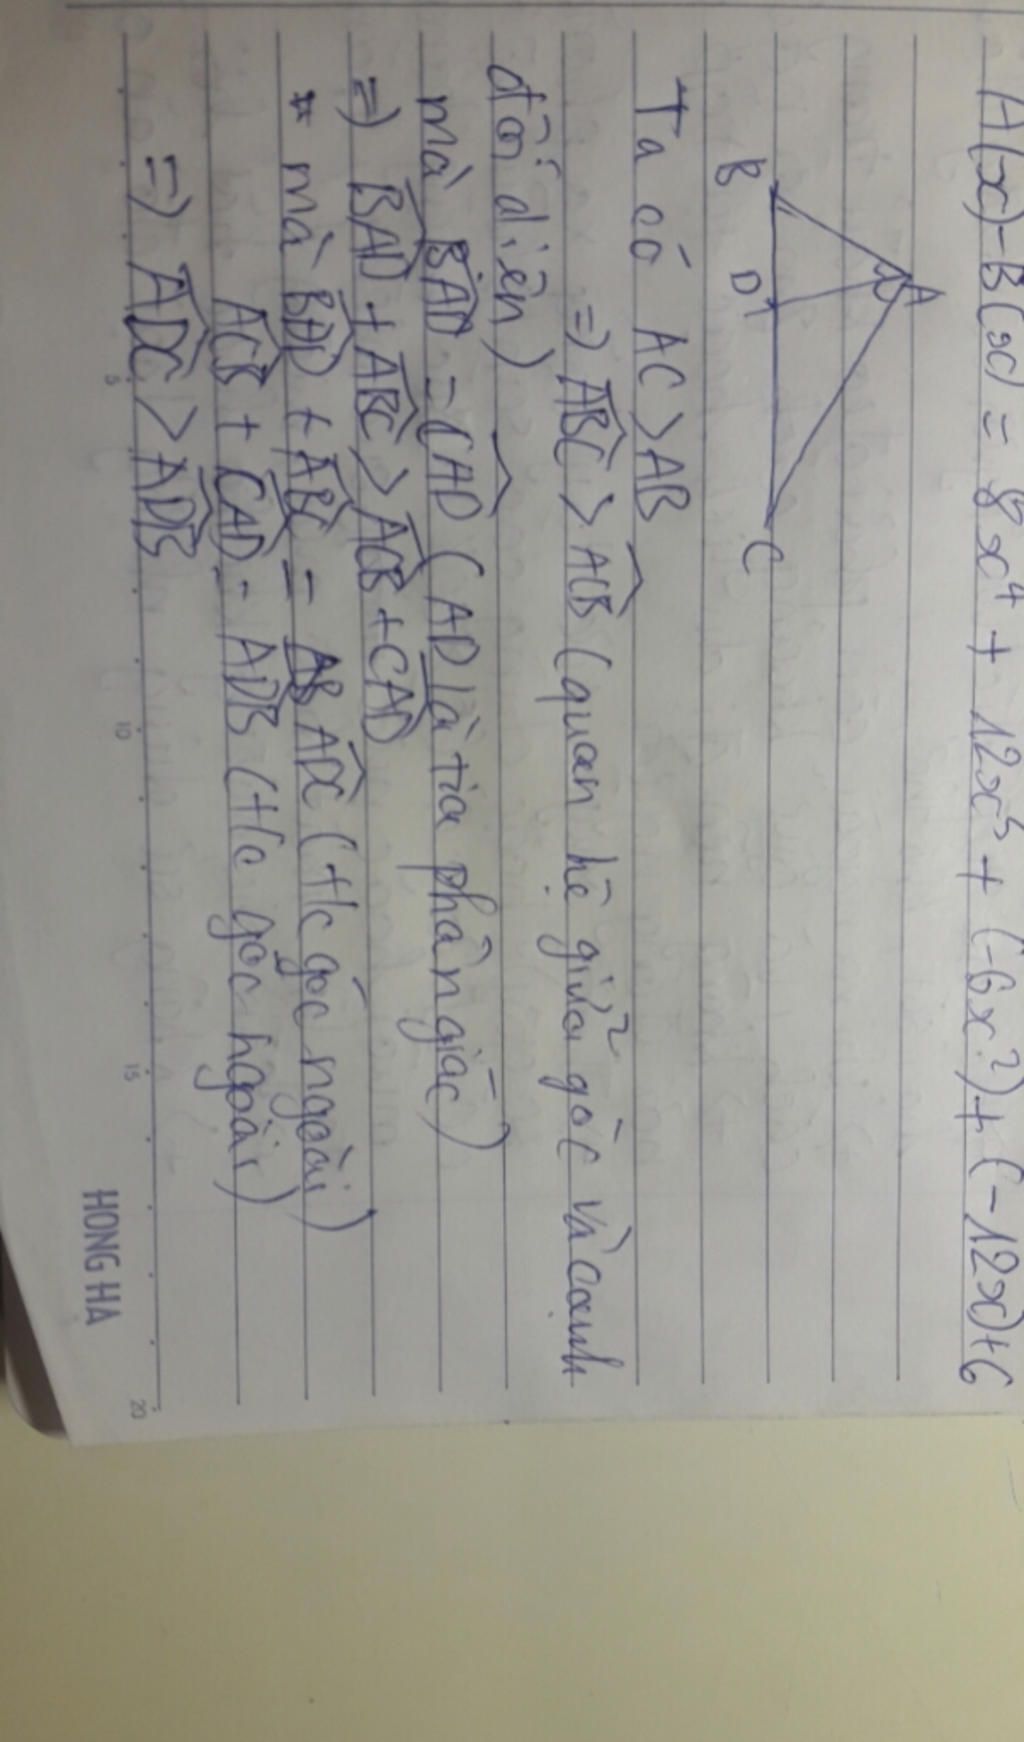 A(x)-B(x) = 8x⁴ + 12x³ + (-6x²) + (-12x)+6
A
B D C
Ta có AC > AB
=) ABC > ACB (quan hệ giữa góc và cạnh
đối diện)
mà BAD = CAD (AD là tia phân giác)
=) BAD + ABC > ACB + CAD
* mà BAD + ABC = ADC (t/c góc ngoài)
ACB + CAD = ADB (t/c góc ngoài)
=) ADC > ADB
5 10 15 20
HONG HA